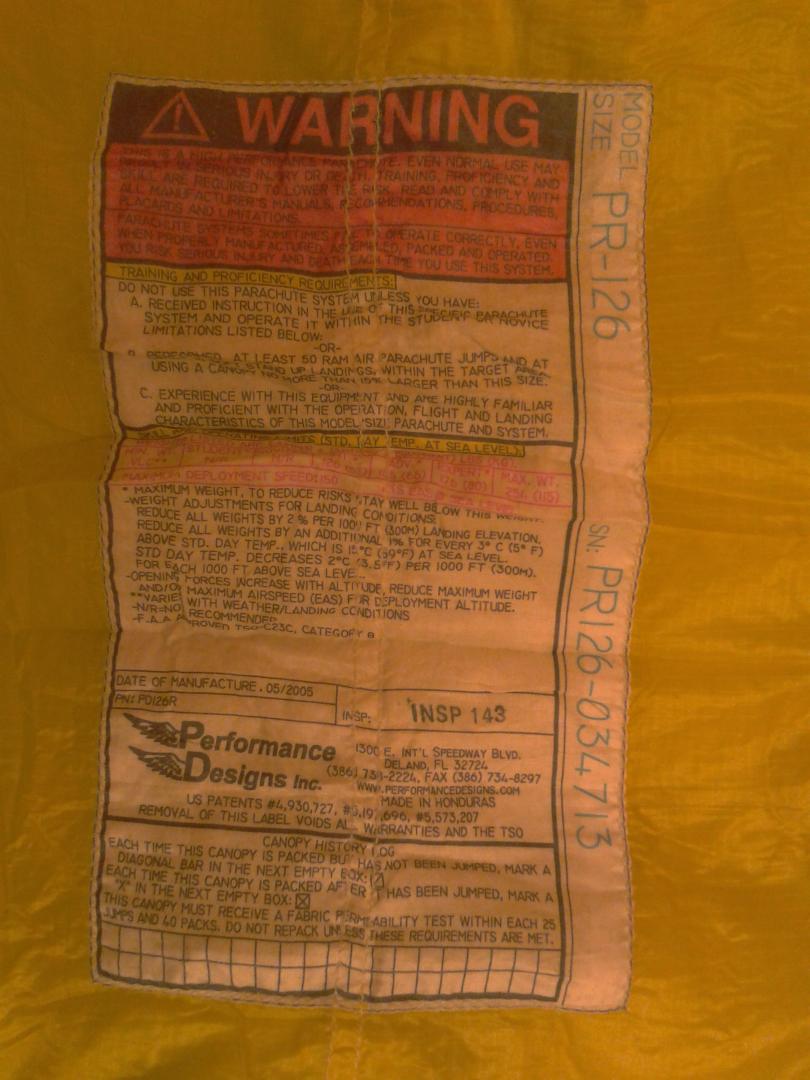 WARNING
THIS IS A HIGH PERFORMANCE PARACHUTE. EVEN NORMAL USE MAY
SERIOUS INJURY OR DEATH. TRAINING, PROFICIENCY AND
SKILL ARE REQUIRED TO LOWER THE RISK. READ AND COMPLY WITH
ALL MANUFACTURER'S MANUALS, RECOMMENDATIONS, PROCEDURES,
PLACARDS AND LIMITATIONS.
PARACHUTE SYSTEMS SOMETIMES FAIL TO OPERATE CORRECTLY, EVEN
WHEN PROPERLY MANUFACTURED, ASSEMBLED, PACKED AND OPERATED.
YOU RISK SERIOUS INJURY AND DEATH EACH TIME YOU USE THIS SYSTEM.
TRAINING AND PROFICIENCY REQUIREMENTS:
DO NOT USE THIS PARACHUTE SYSTEM UNLESS YOU HAVE:
A. RECEIVED INSTRUCTION IN THE USE OF THIS SPECIFIC PARACHUTE
SYSTEM AND OPERATE IT WITHIN THE STUDENT OR NOVICE
LIMITATIONS LISTED BELOW:
-OR-
AT LEAST 50 RAM AIR PARACHUTE JUMPS AND AT
STAND UP LANDINGS, WITHIN THE TARGET AREA,
USING A CANOPY NO MORE THAN 15% LARGER THAN THIS SIZE.
-OR-
C. EXPERIENCE WITH THIS EQUIPMENT AND ARE HIGHLY FAMILIAR
AND PROFICIENT WITH THE OPERATION, FLIGHT AND LANDING
CHARACTERISTICS OF THIS MODEL/SIZE PARACHUTE AND SYSTEM.
LIMITS (STD. DAY TEMP. AT SEA LEVEL):
MAX. WT.
254 (115)
MAXIMUM DEPLOYMENT SPEED: 150
* MAXIMUM WEIGHT, TO REDUCE RISKS STAY WELL BELOW THIS WEIGHT.
-WEIGHT ADJUSTMENTS FOR LANDING CONDITIONS:
REDUCE ALL WEIGHTS BY 2% PER 1000 FT (300M) LANDING ELEVATION.
REDUCE ALL WEIGHTS BY AN ADDITIONAL 1% FOR EVERY 3° C (5° F)
ABOVE STD. DAY TEMP., WHICH IS 15°C (59°F) AT SEA LEVEL.
STD DAY TEMP. DECREASES 2°C (3.5°F) PER 1000 FT (300M).
FOR EACH 1000 FT ABOVE SEA LEVEL.
-OPENING FORCES INCREASE WITH ALTITUDE, REDUCE MAXIMUM WEIGHT
AND/OR MAXIMUM AIRSPEED (EAS) FOR DEPLOYMENT ALTITUDE.
**VARIES WITH WEATHER/LANDING CONDITIONS
-N/R=NOT RECOMMENDED
-F.A.A. APPROVED TSO-C23C, CATEGORY B
DATE OF MANUFACTURE. 05/2005
PN: PD126R
INSP: INSP 143
Performance
Designs Inc.
1300 E. INT'L SPEEDWAY BLVD.
DELAND, FL 32724
(386) 738-2224, FAX (386) 734-8297
WWW.PERFORMANCEDESIGNS.COM
MADE IN HONDURAS
US PATENTS #4,930,727, #5,197,696, #5,573,207
REMOVAL OF THIS LABEL VOIDS ALL WARRANTIES AND THE TSO
CANOPY HISTORY LOG
EACH TIME THIS CANOPY IS PACKED BUT HAS NOT BEEN JUMPED, MARK A
DIAGONAL BAR IN THE NEXT EMPTY BOX:
EACH TIME THIS CANOPY IS PACKED AFTER HAS BEEN JUMPED, MARK A
"X" IN THE NEXT EMPTY BOX:
THIS CANOPY MUST RECEIVE A FABRIC PERMEABILITY TEST WITHIN EACH 25
JUMPS AND 40 PACKS. DO NOT REPACK UNLESS THESE REQUIREMENTS ARE MET.
MODEL
SIZE PR-126
SN: PR126-034713